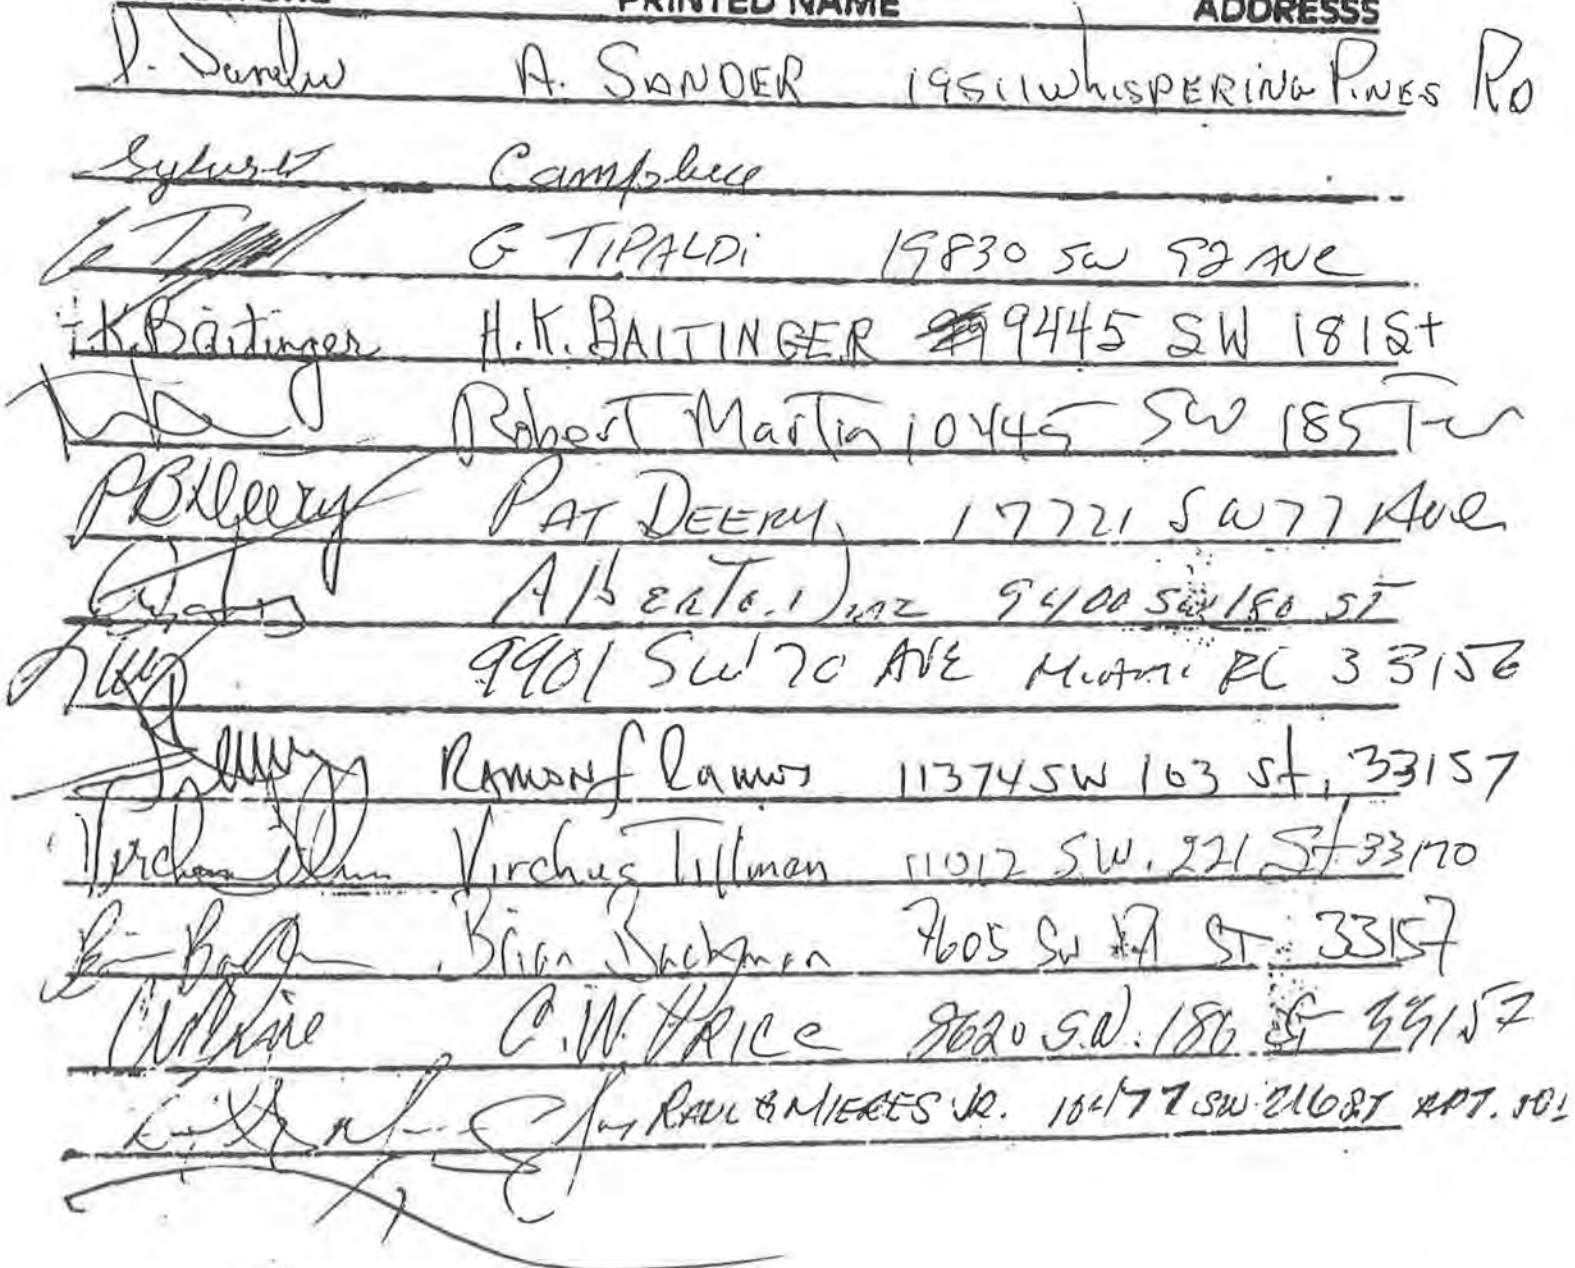 PRINTED NAME ADDRESSS
A. SANDER 19511 WhISPERING PINES RD
Campbell
G TIPALDi 19830 SW 92 AVE
H.K. Baitinger H.K. BAITINGER 9445 SW 181 St
Robert Martin 10445 SW 185 Ter
PBDeery PAT DEERY 17721 SW 77 Ave
AlBERTO Diaz 9400 SW 180 ST
9901 SW 70 AVE Miami FL 33156
RAMON Ramos 11374 SW 163 St, 33157
Virchus Tillman 11012 S.W. 221 St 33170
Brian Backman 7605 SW ST 33157
C.W. PRICE 8620 S.W. 186 St 33157
RAUL B MIERES JR. 10477 SW 216 ST APT. 101